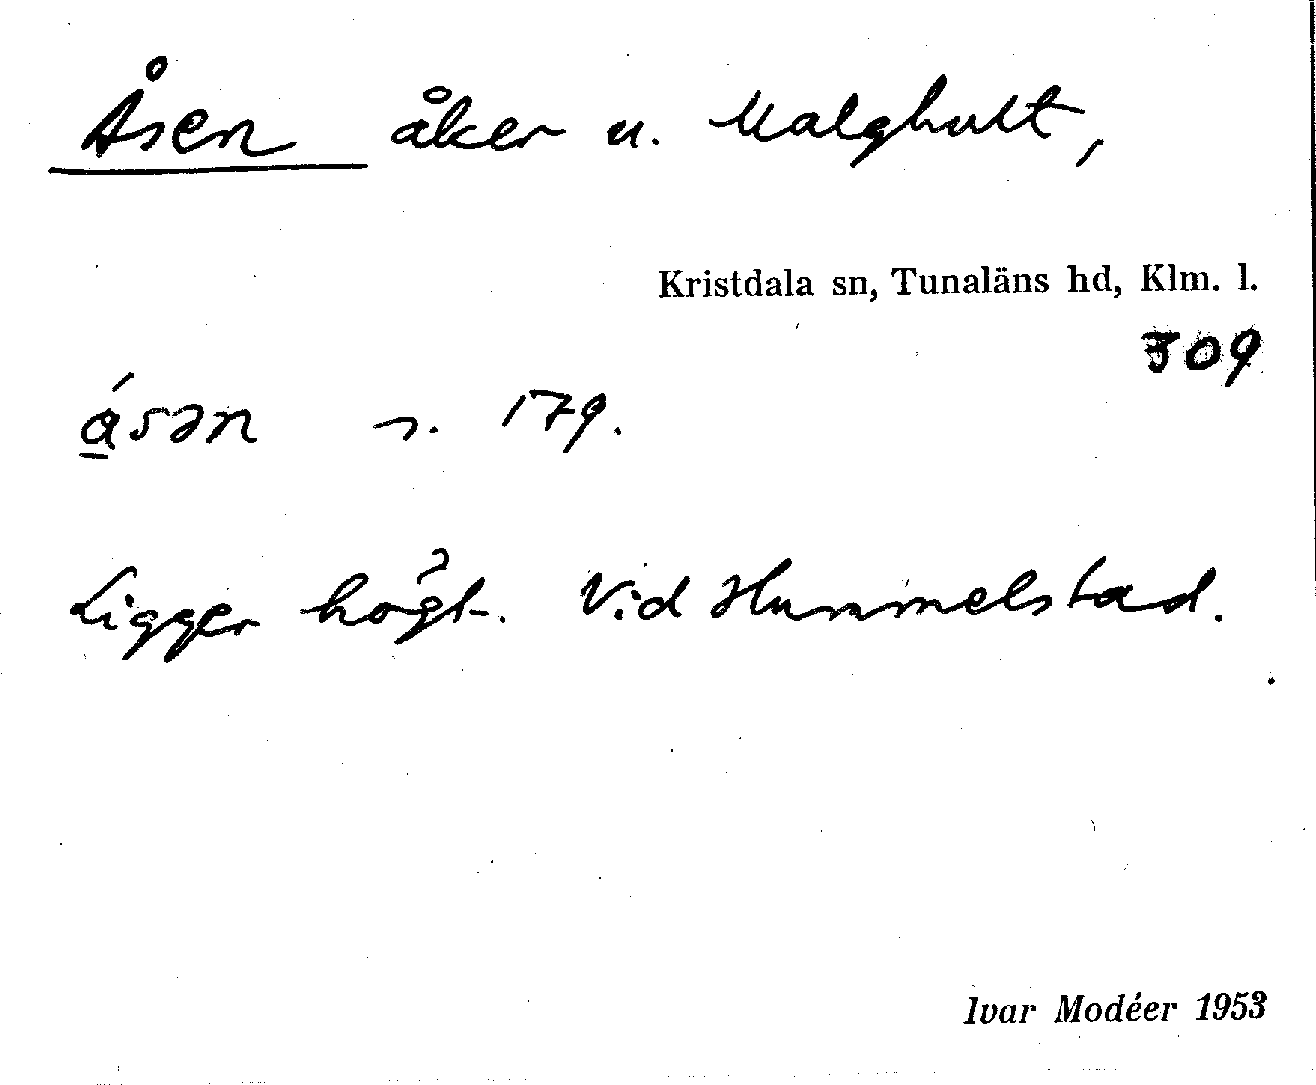 Åsen åker u. Malghult,
Kristdala sn, Tunaläns hd, Klm. l.
309
ásən s. 179.
Ligger högt. Vid Hummelstad.
Ivar Modéer 1953